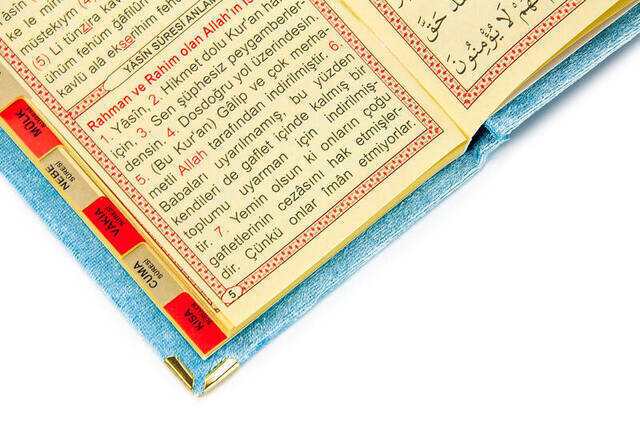 müstekıym (4)
(5) Li tünzira kavmen
ühüm fehüm gâfilûn
kavlü alâ ekserihim fehüm
YÂSİN SÛRESİ ANLAMI
Rahman ve Rahim olan Allah'ın
1. Yâsîn, 2. Hikmet dolu Kur'an hakkı
için, 3. Sen şüphesiz peygamberler-
densin. 4. Dosdoğru yol üzerindesin.
5. (Bu Kur'an) Gâlip ve çok merha-
metli Allah tarafından indirilmiştir. 6.
Babaları uyarılmamış, bu yüzden
kendileri de gaflet içinde kalmış bir
toplumu uyarman için indirilmiş-
tir. 7. Yemin olsun ki onların çoğu
gafletlerinin cezâsını hak etmişler-
dir. Çünkü onlar îmân etmiyorlar.
5
حَقَّ
لَا يُؤْمِنُونَ
MÜLK
SÛRESİ
NEBE
SÛRESİ
VAKIA
SÛRESİ
CUMA
SÛRESİ
KISA
SÛRELER